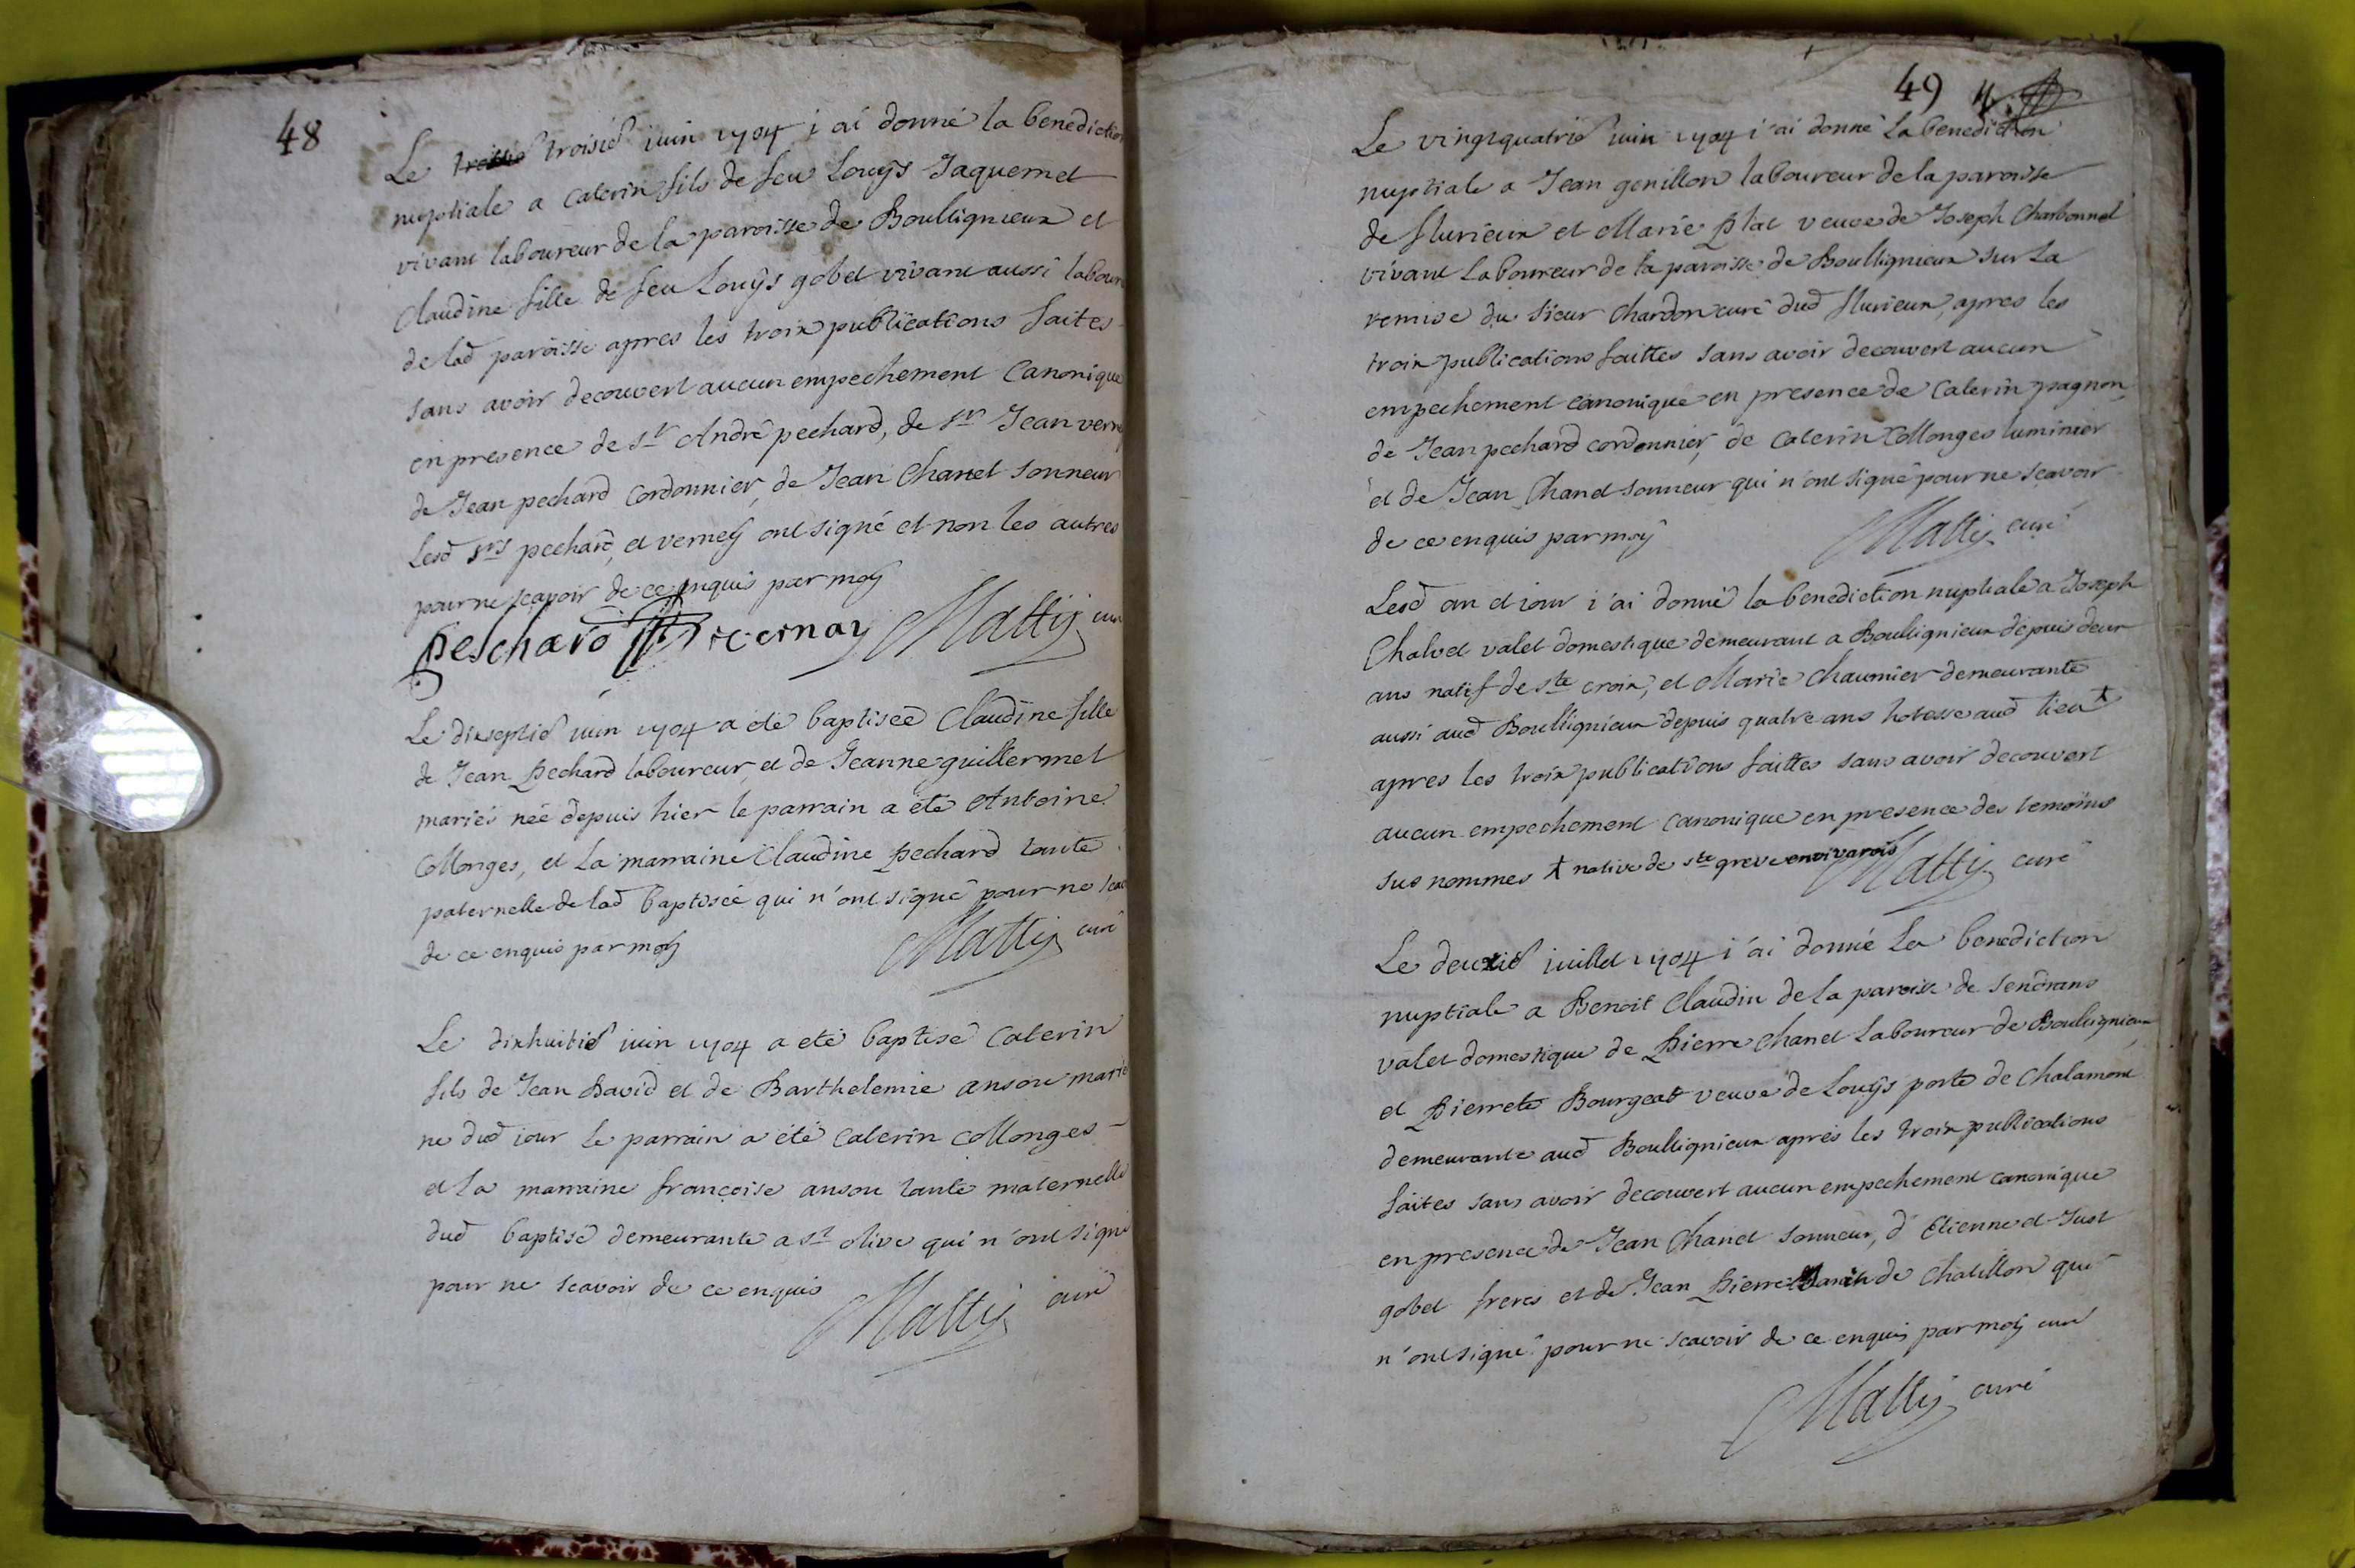 48
Le troisie troisie juin 1704 i ai donné la benediction
nuptiale a Caterin fils de feu Louÿs Jaquemet
vivant laboureur de la paroisse de Boulligneux et
Claudine fille de feu Louÿs gobet vivant aussi labour
de lad paroisse apres les troix publications faites
sans avoir decouvert aucun empechement Canonique
en presence de sr André pechard, de sr Jean verney
de Jean pechard Cordonnier, de Jean Chanel sonneur
lesd srs pechard, et verney ont signé et non les autres
pour ne scavoir de ce enquis par moy
Peschard Vernay Mattis curé
Le dixseptie juin 1704 a eté baptisée Claudine fille
de Jean Pechard laboureur, et de Jeanne guillermet
mariés née depuis hier le parrain a été Antoine
Collonges, et la marraine Claudine Pechard tante
paternelle de lad baptisée qui n'ont signé pour ne scav
de ce enquis par moy Mattis curé
Le dixhuitie juin 1704 a eté baptisé Caterin
fils de Jean David et de Barthelemie ansou marie
ne dud iour le parrain a été Caterin Collonges -
et la marraine françoise ansou tante maternelle
dud baptisé demeurante a st olive qui n'ont signé
pour ne scavoir de ce enquis Mattis curé
49 4.
Le vingtquatrie juin 1704 i'ai donné la benediction
nuptiale a Jean genillon laboureur de la paroisse
de flurieux et Marie Plat veuve de Joseph Charbonnel
vivant laboureur de la paroisse de Boullignieux sur la
remise du sieur Chardon curé dud flurieux, apres les
troix publications faittes sans avoir decouvert aucun
empechement canonique en presence de Caterin pagnon,
de Jean pechard cordonnier, de Caterin Collonges luminier
et de Jean Chanel sonneur qui n'ont signé pour ne scavoir
de ce enquis par moÿ Mattis curé
Lesd an et iour i'ai donné la benediction nuptiale a Joseph
Chalvet valet domestique demeurant a Boullignieux depuis deux
ans natif de ste croix, et Marie Chaumier demeurante
aussi aud Boullignieux depuis quatre ans hotesse aud lieu +
apres les troix publications faittes sans avoir decouvert
aucun empechement canonique en presence des temoins
sus nommes + native de ste greve en vivarois Mattis curé
Le deuxie juillet 1704 i'ai donné la benediction
nuptiale a Benoit Claudin de la paroisse de Sendrans
valet domestique de Pierre Chanel laboureur de Boullignieux
et Pierrete Bourgeat veuve de Louÿs porte de Chalamont
demeurante aud Boullignieux aprés les troix publications
faites sans avoir decouvert aucun empechement canonique
en presence de Jean Chanel sonneur, d'Etienne et Just
gobet freres et de Jean Pierre de Chatillon qui
n'ont signé pour ne scavoir de ce enquis par moÿ curé
Mattis curé